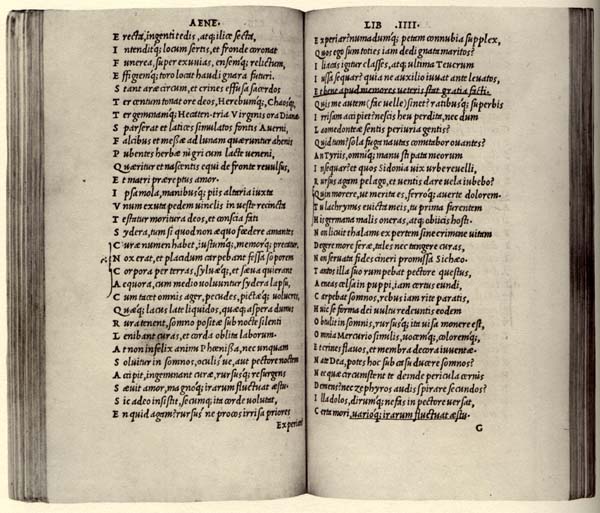 AENE.
E recta, ingenti tedis, atq; ilice secta,
I ntenditq; locum sertis, et fronde coronat
F unerea, super exuvias, ensemq; relictum,
E ffigiemq; toro locat haud ignara futuri.
S tant aræ circum, et crines effusa sacerdos
T er centum tonat ore deos, Herebumq;, Chaosq;,
T ergeminamq; Hecaten, tria Virginis ora Dianæ
S parserat et latices simulatos fontis Averni,
F alcibus et messæ ad lunam quæruntur ahenis
P ubentes herbæ nigri cum lacte veneni,
Q uæritur et nascentis equi de fronte revulsus,
E t matri præreptus amor.
I psa mola, manibusq; piis altaria iuxta
V num exuta pedem vinclis, in veste recincta
T estatur moritura deos, et conscia fati
S ydera, tum si quod non æquo fœdere amantes
C uræ numen habet, iustumq;, memorq; precatur.
N ox erat, et placidum carpebant fessa soporem
C orpora per terras, sylvæq;, et sæua quierant
A equora, cum medio voluuntur sydera lapsu,
C um tacet omnis ager, pecudes, pictæq; volucres,
Q uæq; lacus late liquidos, quæq; aspera dumis
R ura tenent, somno positæ sub nocte silenti
L enibant curas, et corda oblita laborum.
A t non infelix animi Phœnissa, nec unquam
S oluitur in somnos, oculis ue, aut pectore noctem
A ccipit, ingeminant curæ, rursusq; resurgens
S æuit amor, magnoq; irarum fluctuat æstu.
S ic adeo insistit, secumq; ita corde volutat,
E n quid agam? rursus ne procos irrisa priores
Experiar
LIB .IIII.
E xperiar? numadumq; petam connubia supplex,
Q uos ego sum toties iam dedignata maritos?
I liacas igitur classes, atq; ultima Teucrum
I ussa sequar? quia ne auxilio iuvat ante levatos,
E t bene apud memores veteris stat gratia facti.
Q uis me autem (fac velle) sinet? ratibusq; superbis
I rrisam accipiet? nescis heu perdita, nec dum
L aomedonteæ sentis periuria gentis?
Q uid tum? sola fuga nautas comitabor ovantes?
A n Tyriis, omniq; manu stipata meorum
I nsequar? et quos Sidonia vix urbe revelli,
R ursus agam pelago, et ventis dare vela iubebo?
Q uin morere, ut merita es, ferroq; averte dolorem.
T u lachrymis evicta meis, tu prima furentem
H is germana malis oneras, atq; obiicis hosti.
N on licuit thalami expertem sine crimine vitam
D egere more feræ, tales nec tangere curas,
N on servata fides cineri promissa Sichæo.
T antos illa suo rumpebat pectore questus,
A eneas celsa in puppi, iam certus eundi,
C arpebat somnos, rebus iam rite paratis,
H uic se forma dei vultu redeuntis eodem
O btulit in somnis, rursusq; ita visa monere est,
O mnia Mercurio similis, vocemq;, coloremq;,
E t crines flavos, et membra decora iuventæ.
N ate Dea, potes hoc sub casu ducere somnos?
N ec quæ circumstent te deinde pericula cernis
D emens? nec zephyros audis spirare secundos?
I lla dolos, dirumq; nefas in pectore versat,
C erta mori, varioq; irarum fluctuat æstu.
G